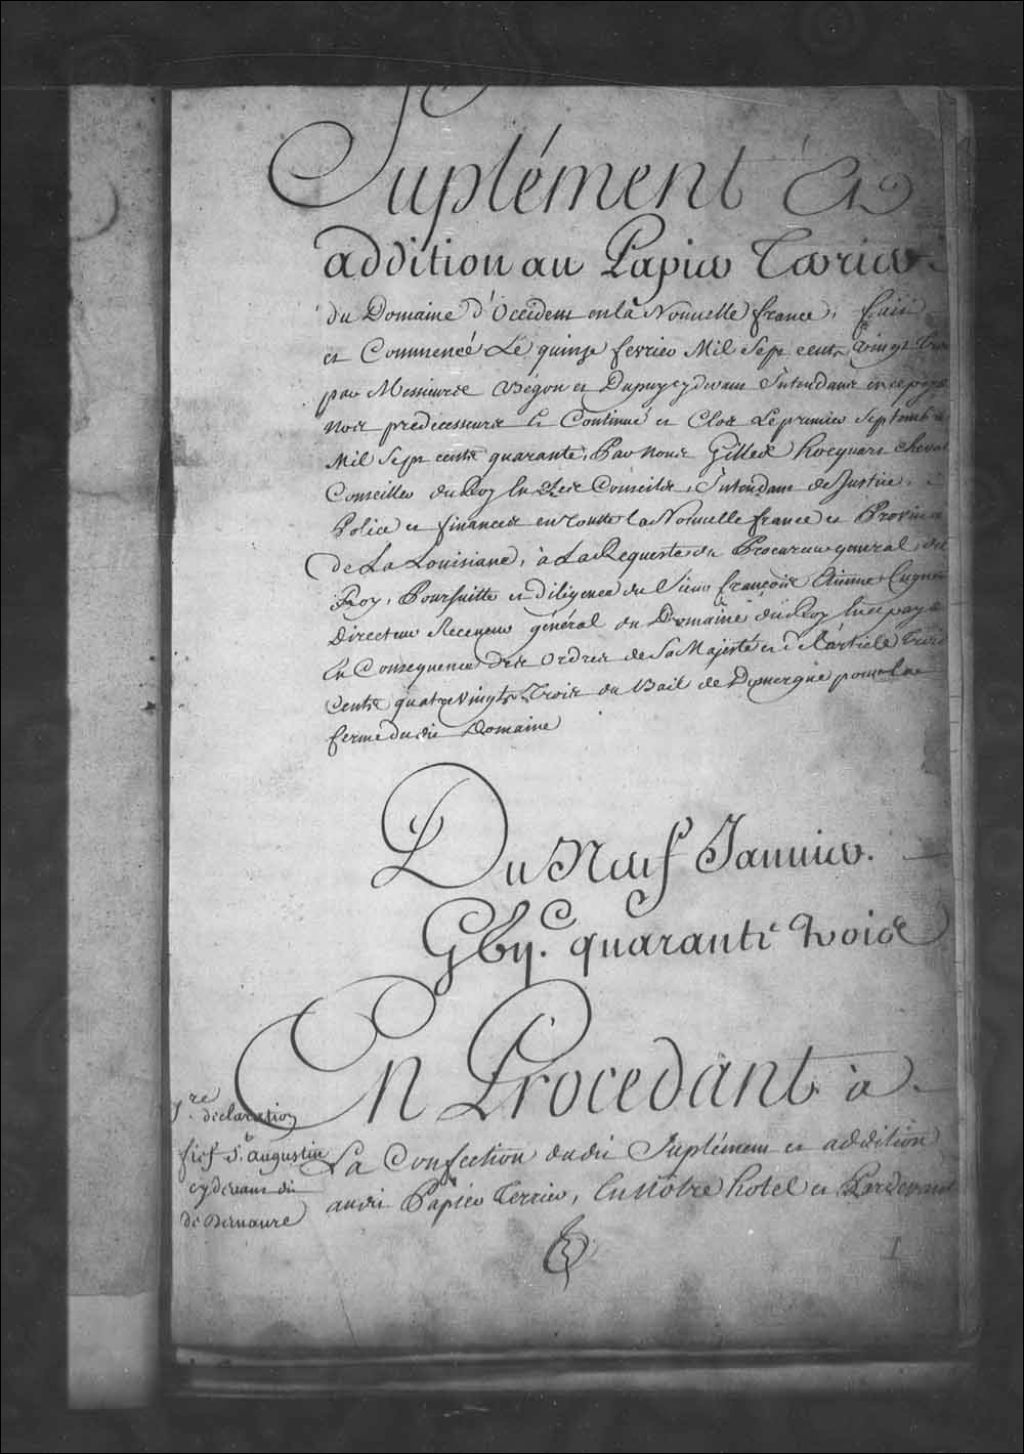 Suplément Et
addition au Papier Terrier
du Domaine d'Occident en la Nouvelle france, fait
et Commencé Le quinze fevrier Mil Sept cents vingt trois
par Messieurs Bégon et Dupuy cydevant Intendans en ce pays
nos predecesseurs Et Continué et Clos Le premier Septembre
Mil Sept cents quarante, Par nous Gilles hocquart cheval
Conseiller du Roy En Ses Conseils, Intendant de Justice,
Police et finances en toutte la Nouvelle france et Province
de La Louisiane, à La Requeste du Procureur general du
Roy, Poursuitte et diligence du Sieur françois Etienne Cugnet
Directeur Receveur général du Domaine du Roy En ce pays
En Consequence des Ordres de Sa Majesté et de l'article trois
Cents quatrevingts Trois du Bail de pour la
ferme dudit Domaine
Du Neuf Januier.
Gbijc. quarante trois
En Procedant à
1.re déclaration
fief St augustin
cydevant dit
de Demaure
La Confection dudit Suplément et addition
audit Papier Terrier, En Nôtre hotel et Pardevant
1